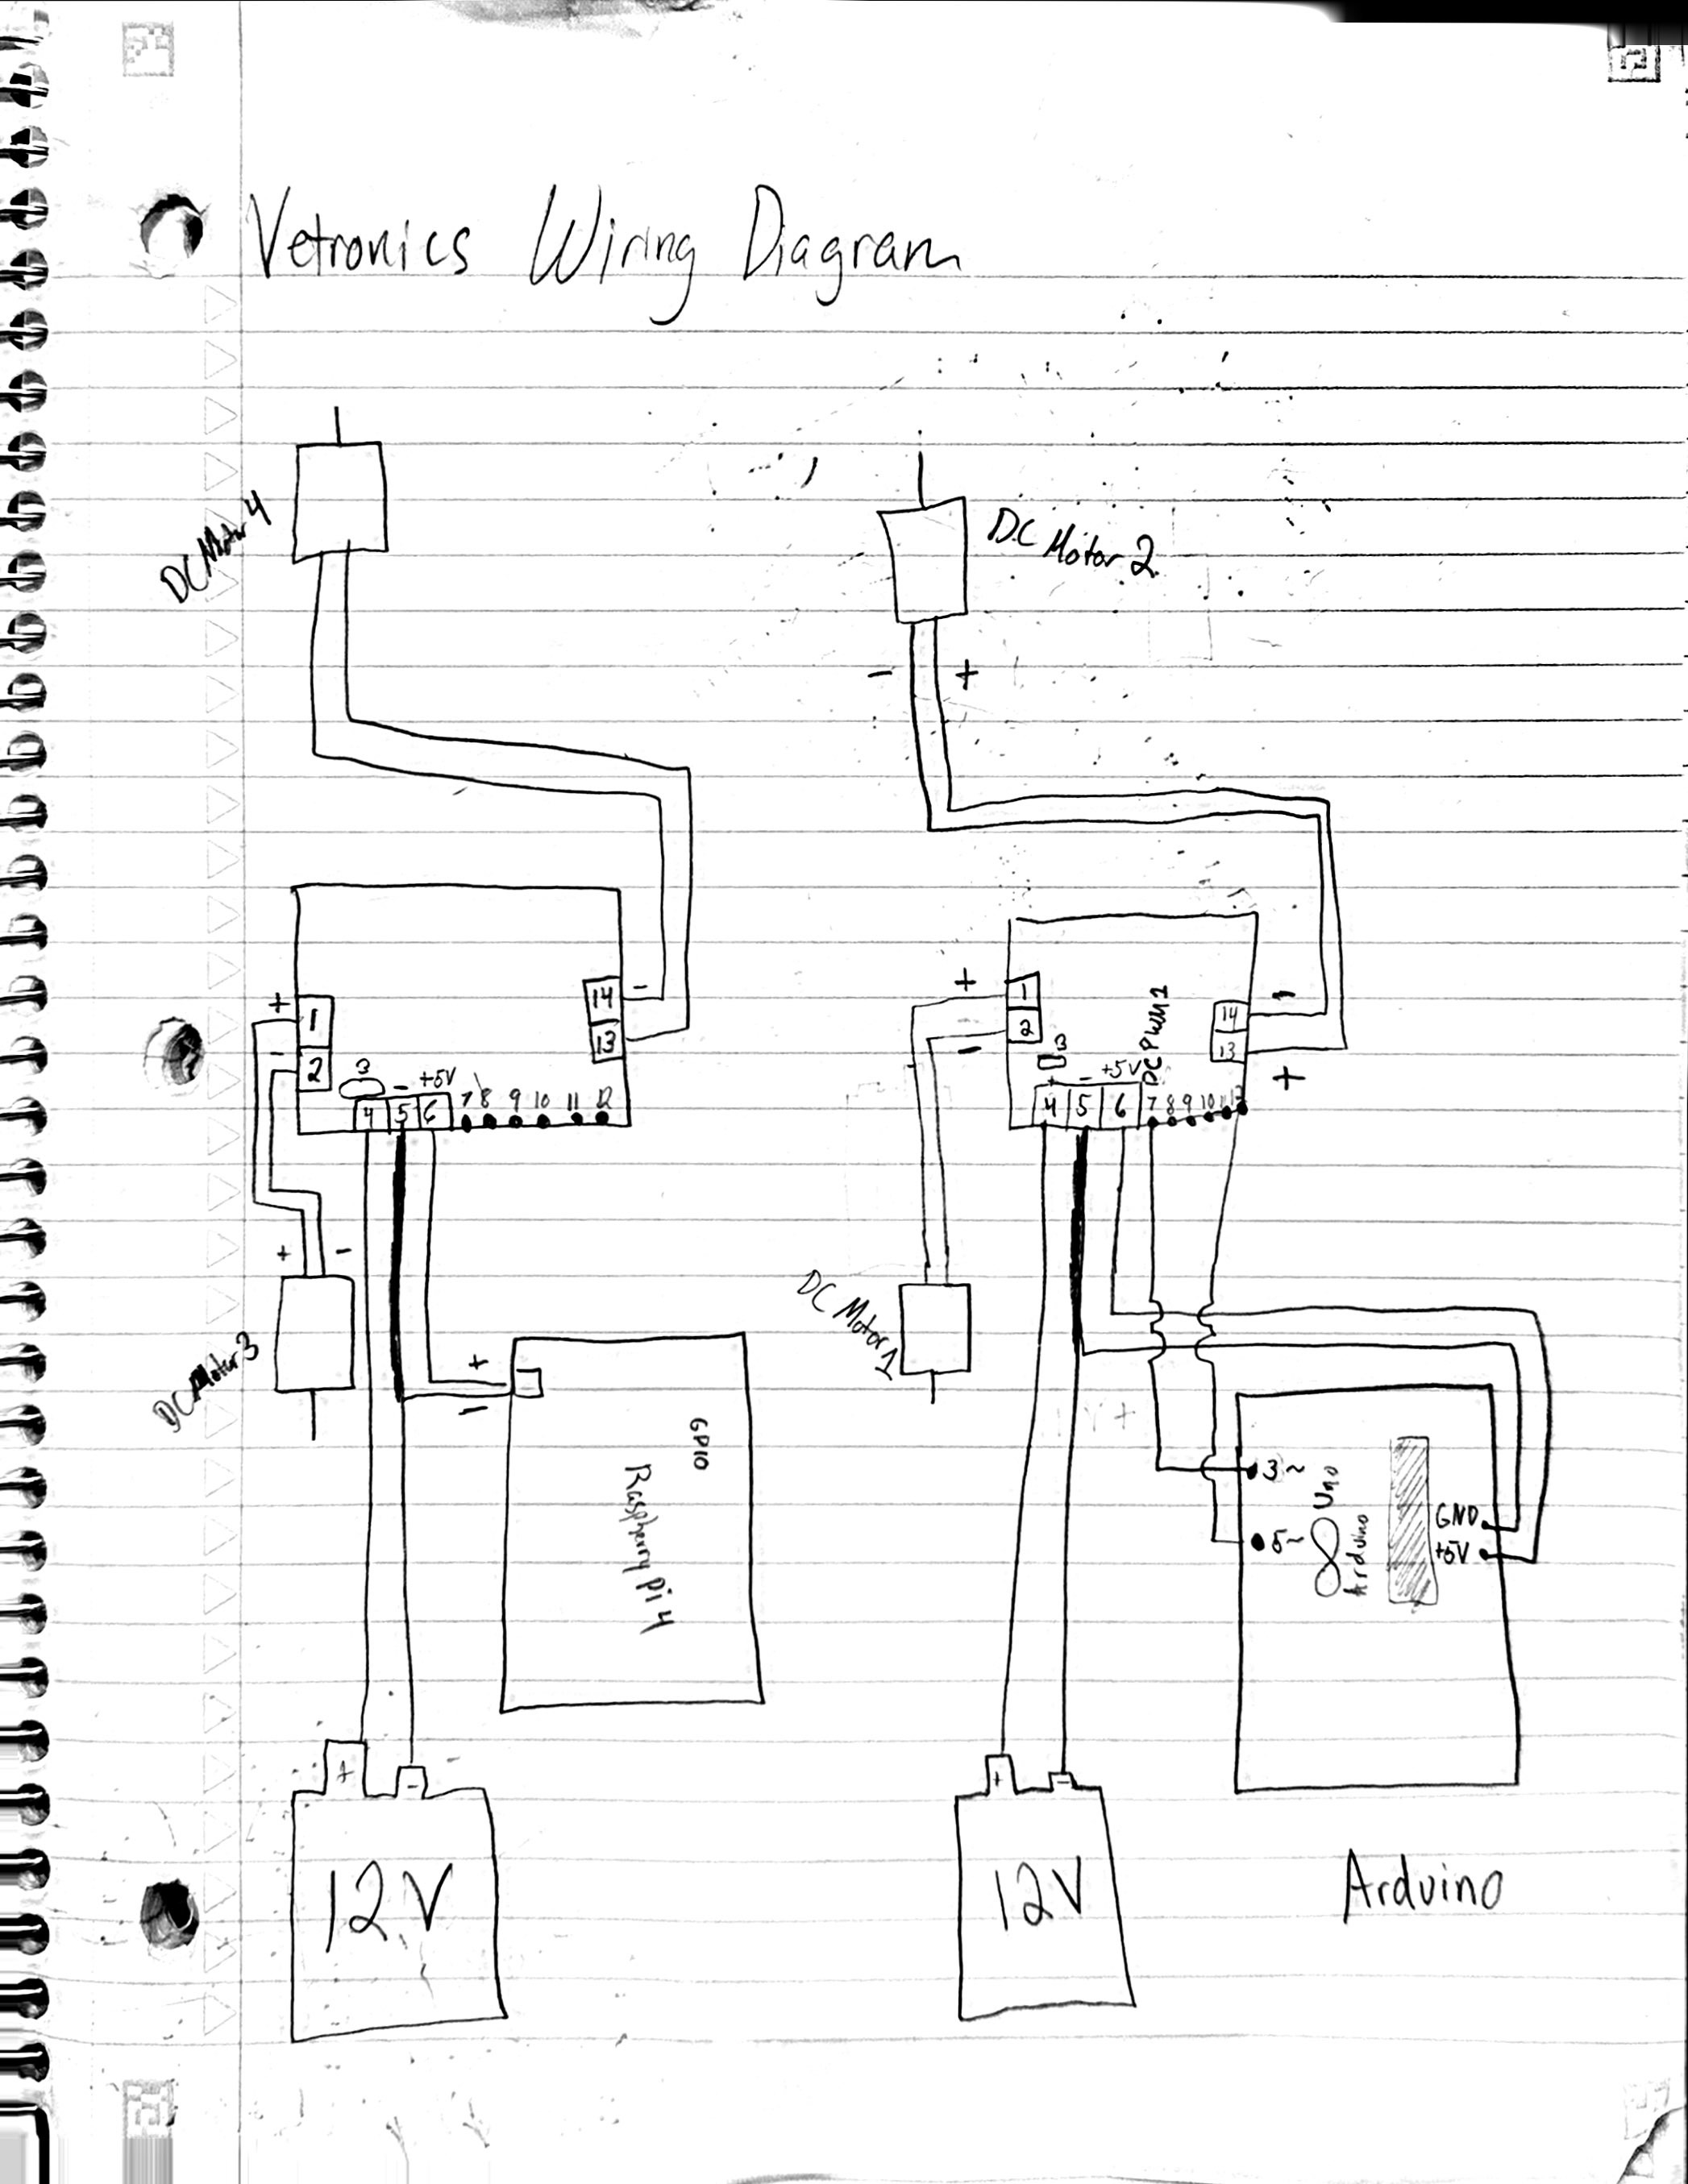 Vetronics Wiring Diagram
DC Motor 4
DC Motor 2
- +
14 -
13
+ 1
- 2
3
- +5V
4 5 6 7 8 9 10 11 12
+ -
DC Motor 3
+
-
GPIO
Raspberry Pi 4
+ -
12V
+ 1
- 2
3
DC PWM 1
14 -
13 +
+ - +5V
4 5 6 7 8 9 10 11 12
DC Motor 1
3~
5~
Uno
Arduino
GND
+5V
+ -
12V
Arduino